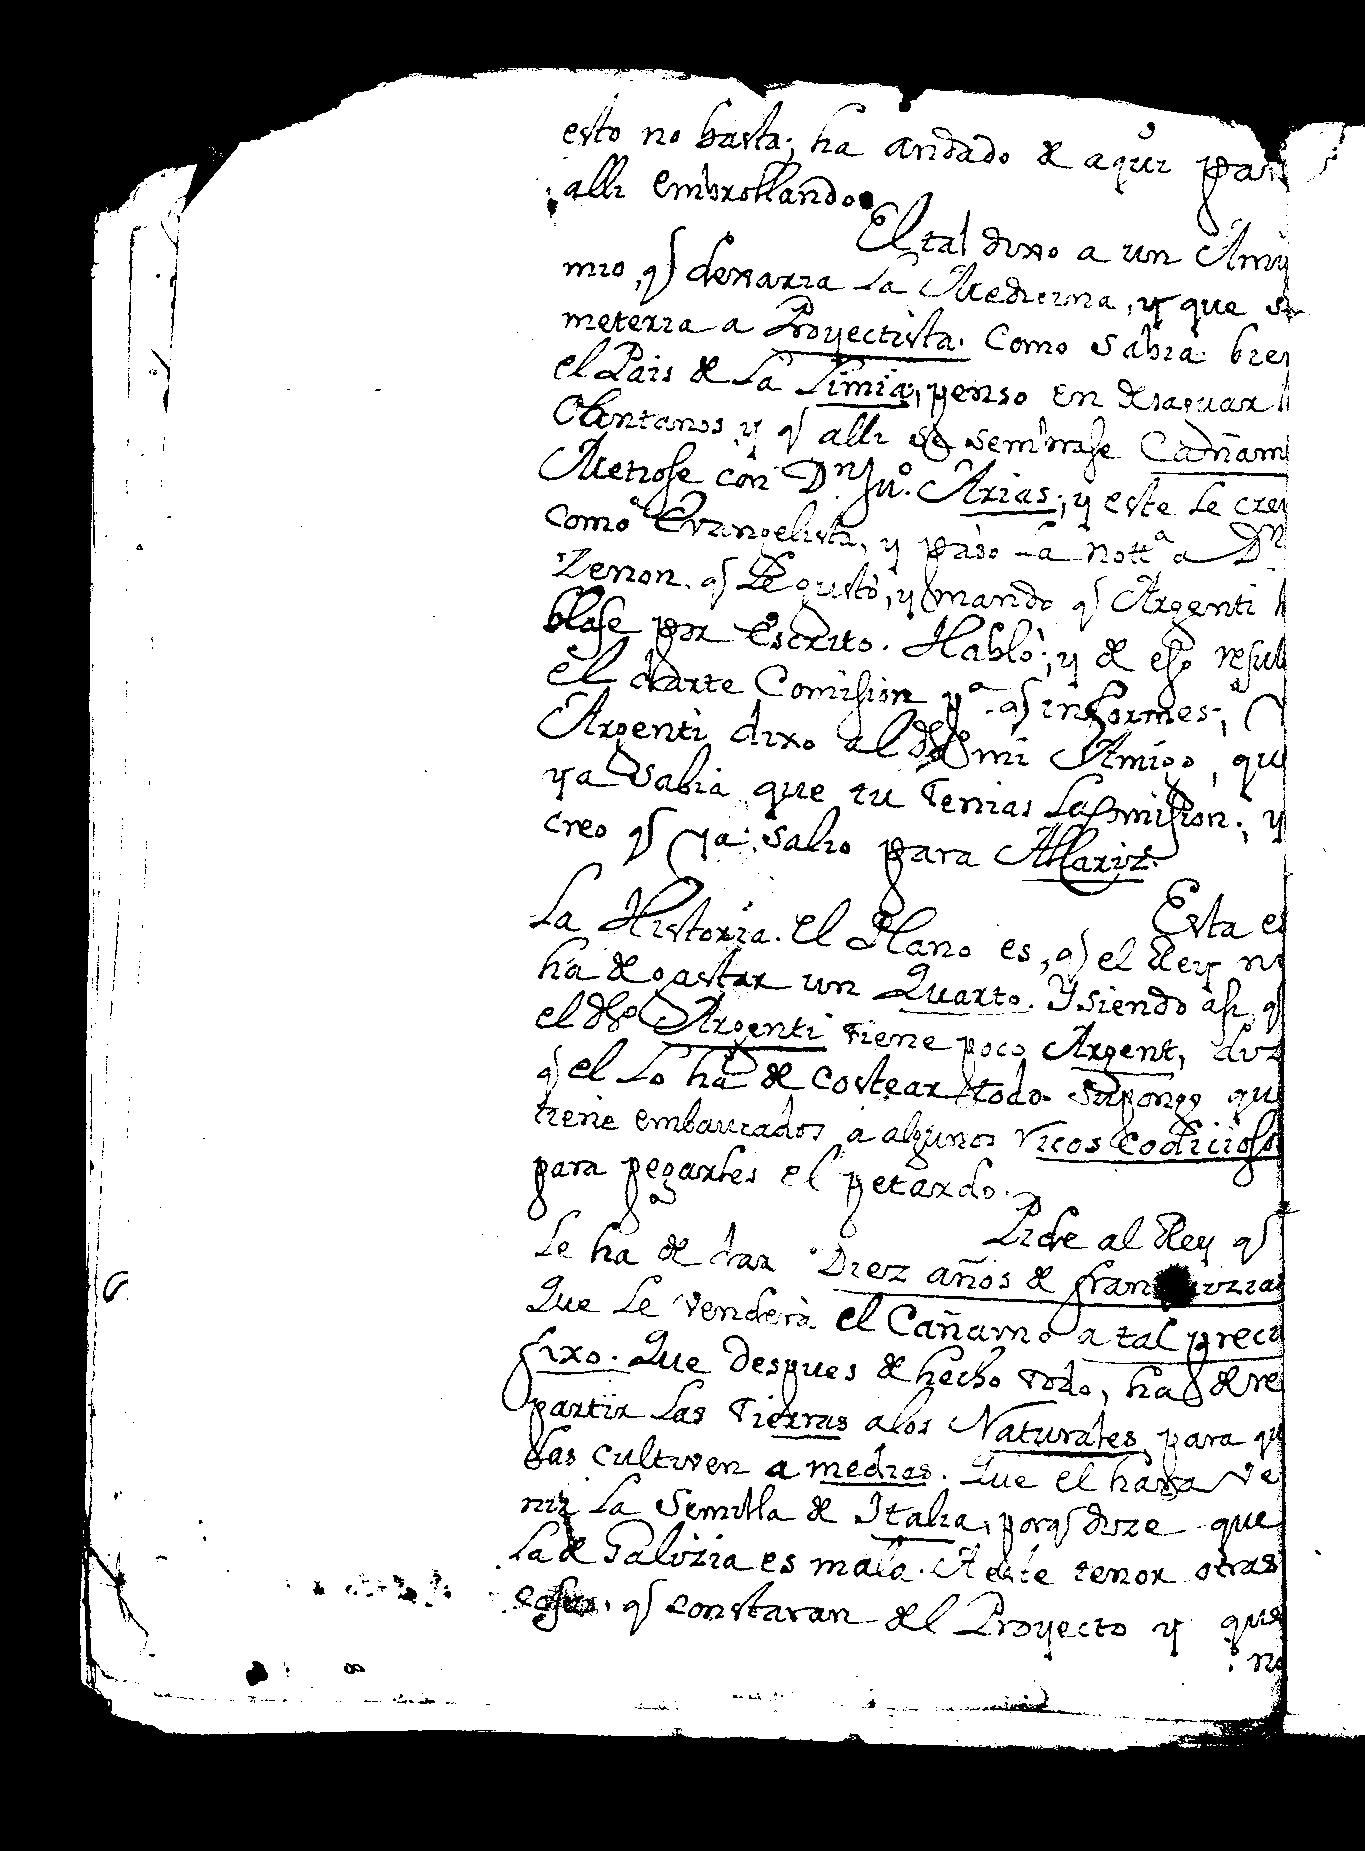 esto no basta; ha andado de aqui par
alli embrollando.
El tal dixo a un Amig
mio, q̃ dexaria la Medicina, y que se
meteria a Proyectista. Como sabia bien
el Pais de la Limia, penso en desaguar l
y q̃ alli se sembrase Cañam
Metiose con Dn. Ju.º Arias; y este le crey
como Evangelista, y pasò la nott.ª a Dn
Zenon. q̃ le gustò, y mando q̃ Argenti h
blase por Escrito. Hablò; y de eso resul
el darte Comision p.ª q̃ informes;
Argenti dixo al dho mi Amigo, que
ya sabia que tu tenias la Comision; y
creo q̃ ya salio para Allariz.
Esta es
la Historia. el Plano es, q̃ el Rey no
ha de gastar un Quarto. Y siendo asi q̃
el dho Argenti tiene poco Argent, diz
q̃ el lo ha de costear todo. Supongo que
tiene embaucados a algunos Ricos codiciosos
para pegarles el petardo.
Pide al Rey q̃
le ha de dar Diez años de franquizias
Que le venderà el Cañamo a tal preci
fixo. Que despues de hecho todo, ha de re
partir las Tierras a los Naturales, para qu
las cultiven a medias. Que el hara ve
nir la Semilla de Italia, porq̃ dize que
la de Galizia es mala. A este tenor otras
cosas. q̃ constaran del Proyecto y que
no